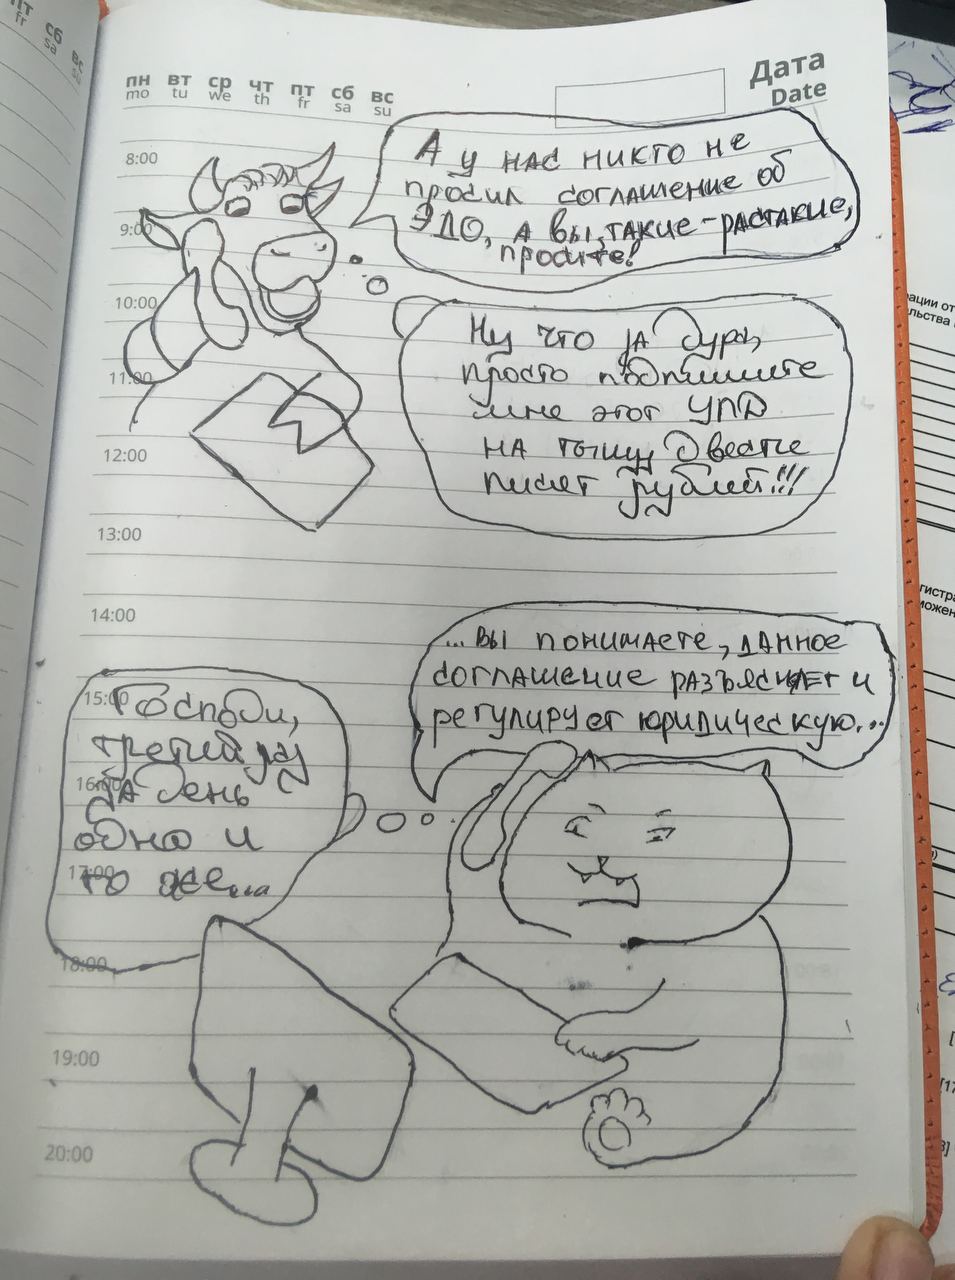 пн вт ср чт пт сб вс
mo tu we th fr sa su
Дата
Date
8:00
9:00
10:00
11:00
12:00
13:00
14:00
15:00
16:00
17:00
18:00
19:00
20:00
А у нас никто не
просил соглашение об
ЭДО, а вы, такие-растакие,
просите!
Ну что за дура,
просто подпишите
мне этот УПД
на тыщу двести
писят рублей!!!
...вы понимаете, данное
соглашение разъясняет и
регулирует юридическую...
Господи,
третий раз
за день
одно и
то же...